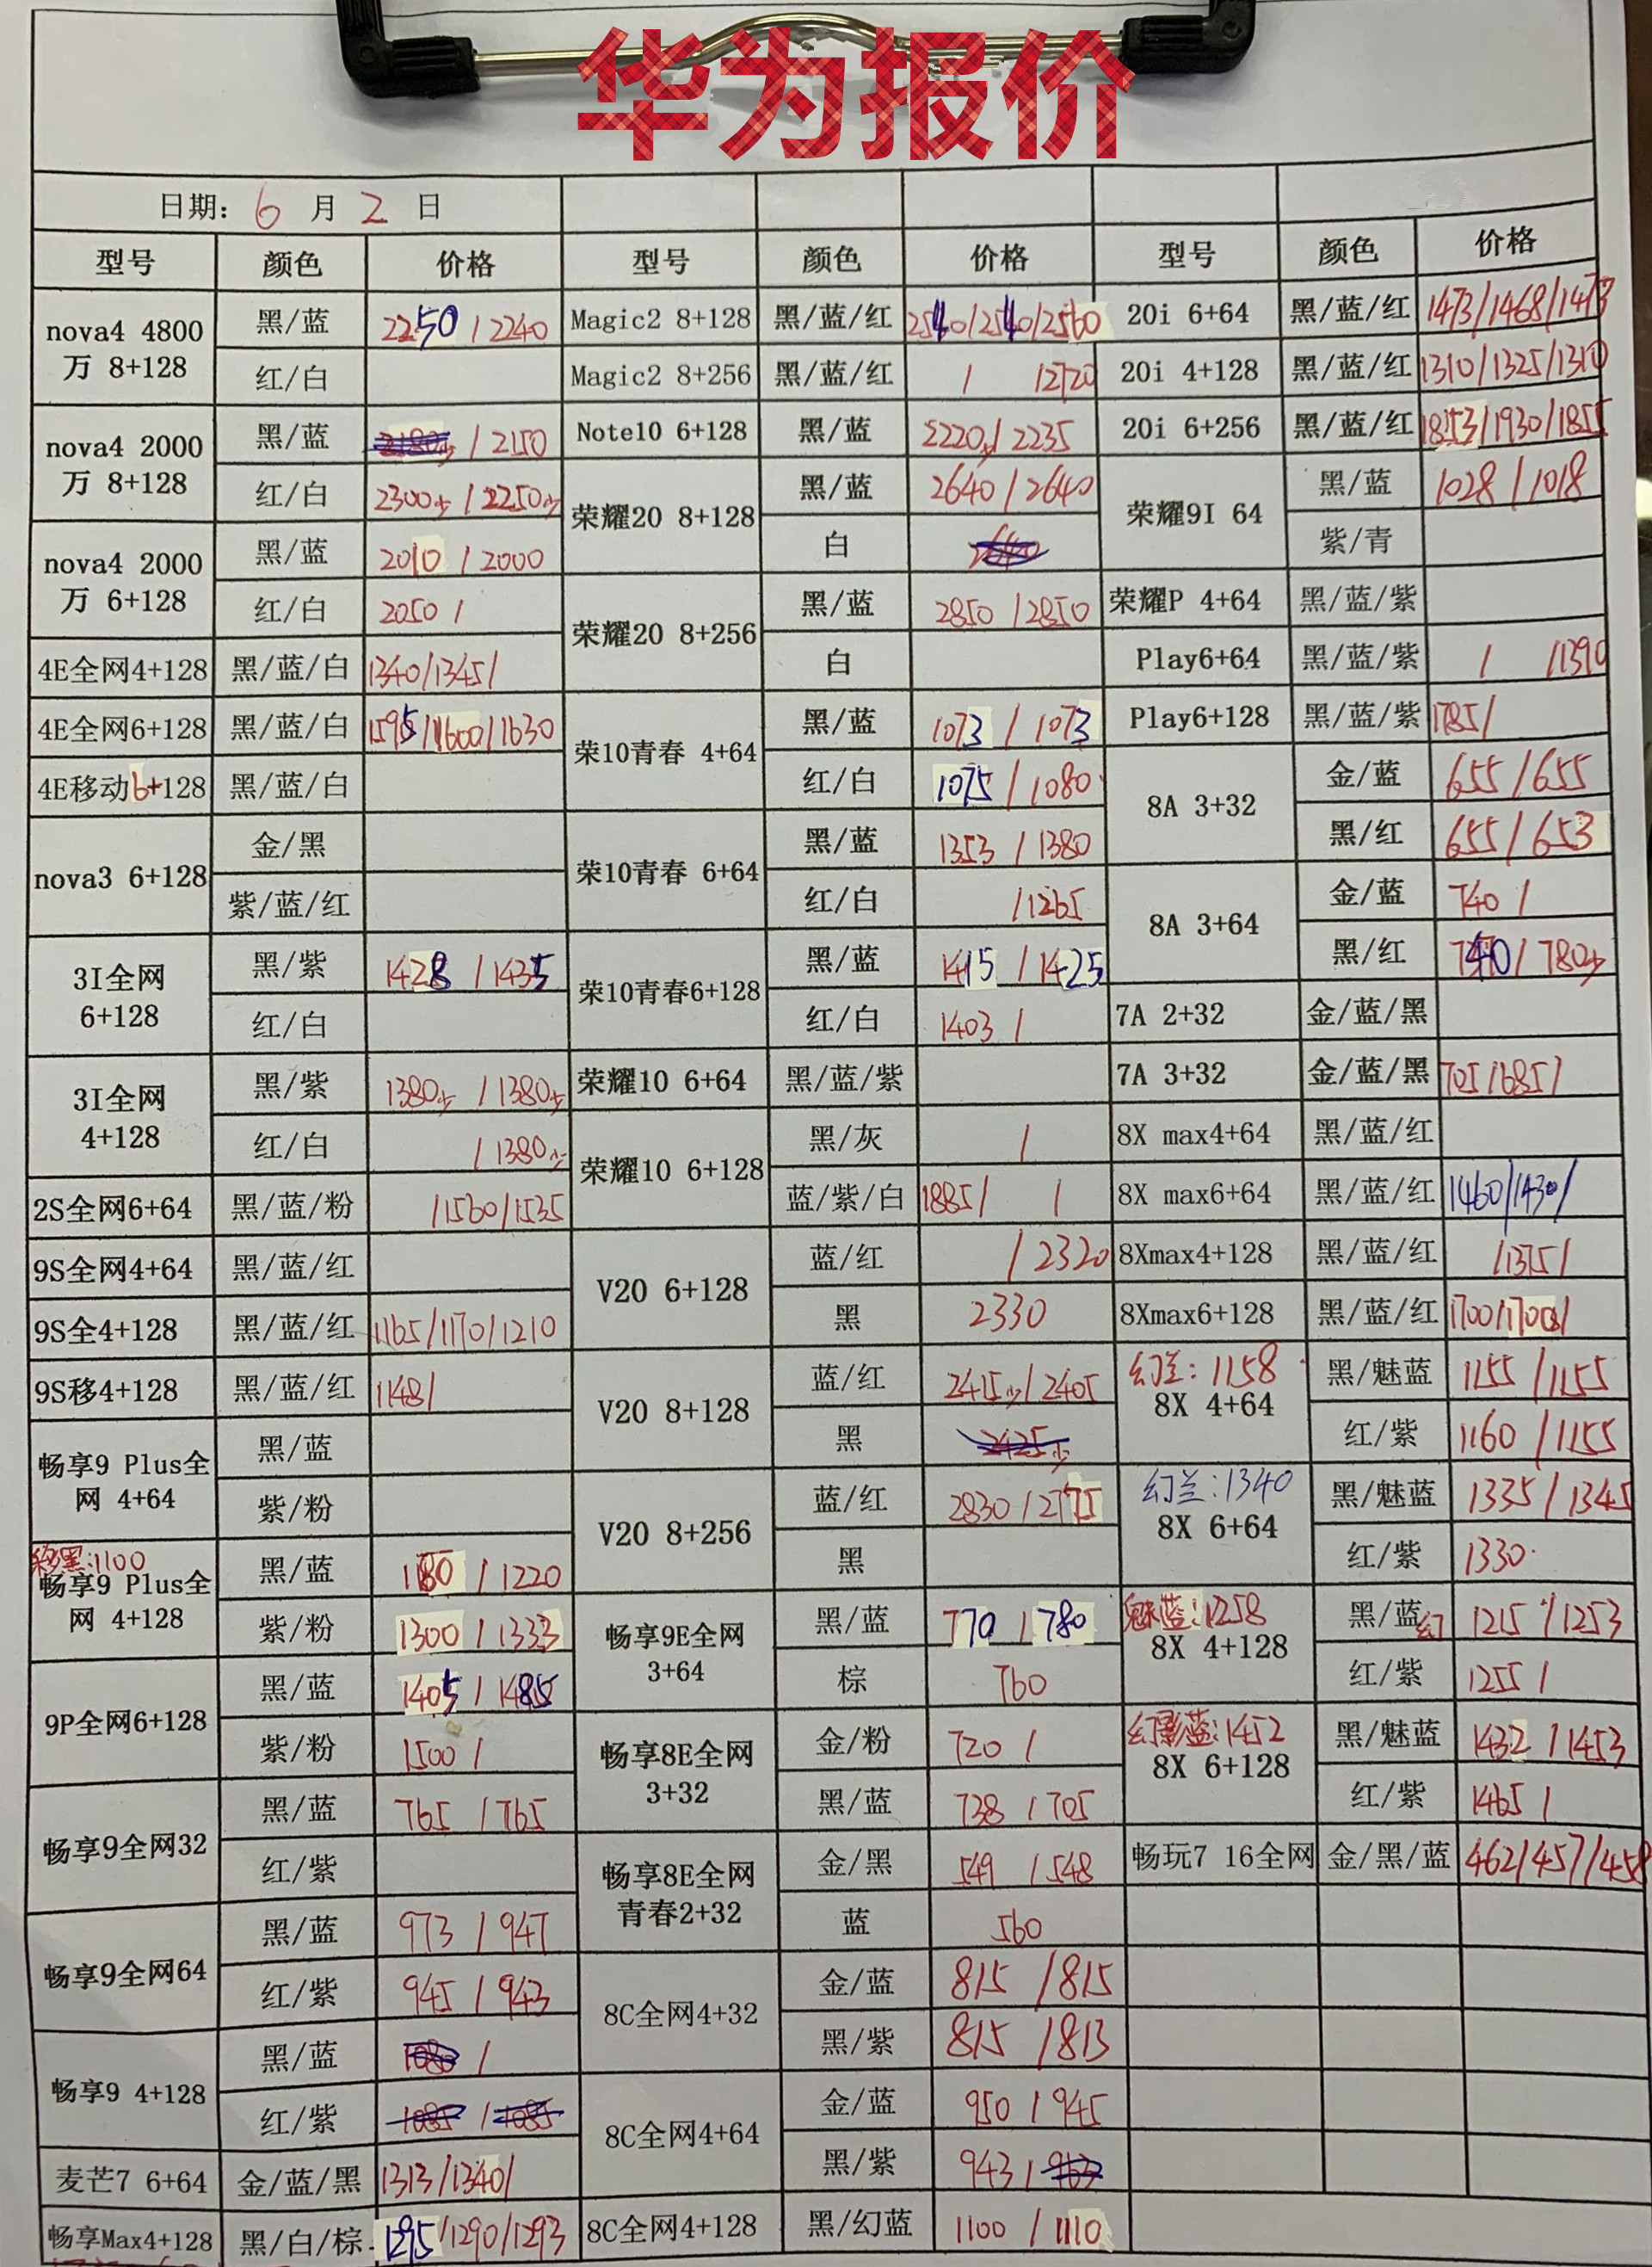 华为报价
日期: 6 月 2 日
型号 颜色 价格 型号 颜色 价格 型号 颜色 价格
nova4 4800万 8+128 黑/蓝 2250 / 2240
红/白
nova4 2000万 8+128 黑/蓝 / 2150
红/白 2300少 / 2250少
nova4 2000万 6+128 黑/蓝 2010 / 2000
红/白 2050 /
4E全网4+128 黑/蓝/白 1340/1345/
4E全网6+128 黑/蓝/白 1595/1600/1630
4E移动6+128 黑/蓝/白
nova3 6+128 金/黑
紫/蓝/红
3I全网 6+128 黑/紫 1428 / 1435
红/白
3I全网 4+128 黑/紫 1380少 / 1380少
红/白 / 1380少
2S全网6+64 黑/蓝/粉 /1560/1535
9S全网4+64 黑/蓝/红
9S全4+128 黑/蓝/红 1165/1170/1210
9S移4+128 黑/蓝/红 1148/
畅享9 Plus全网 4+64 黑/蓝
紫/粉
移黑:1100
畅享9 Plus全网 4+128 黑/蓝 1180 / 1220
紫/粉 1300 / 1333
9P全网6+128 黑/蓝 1405 / 1485
紫/粉 1500 /
畅享9全网32 黑/蓝 765 / 765
红/紫
畅享9全网64 黑/蓝 973 / 947
红/紫 945 / 943
畅享9 4+128 黑/蓝 /
红/紫 1085 / 1085
麦芒7 6+64 金/蓝/黑 1313/1340/
畅享Max4+128 黑/白/棕 1295/1290/1293
Magic2 8+128 黑/蓝/红 2540/2540/2560
Magic2 8+256 黑/蓝/红 / /2720
Note10 6+128 黑/蓝 2220少/ 2235
荣耀20 8+128 黑/蓝 2640 / 2640
白
荣耀20 8+256 黑/蓝 2850 / 2850
白
荣10青春 4+64 黑/蓝 1073 / 1073
红/白 1075 / 1080
荣10青春 6+64 黑/蓝 1353 / 1380
红/白 / 1265
荣10青春6+128 黑/蓝 1415 / 1425
红/白 1403 /
荣耀10 6+64 黑/蓝/紫
荣耀10 6+128 黑/灰 /
蓝/紫/白 1885/ /
V20 6+128 蓝/红 / 2320
黑 2330
V20 8+128 蓝/红 2415少/ 2405
黑 2425少
V20 8+256 蓝/红 2830 / 2775
黑
畅享9E全网 3+64 黑/蓝 770 / 780
棕 760
畅享8E全网 3+32 金/粉 720 /
黑/蓝 738 / 705
畅享8E全网 青春2+32 金/黑 549 / 548
蓝 560
8C全网4+32 金/蓝 815 / 815
黑/紫 815 / 813
8C全网4+64 金/蓝 950 / 945
黑/紫 943 /
8C全网4+128 黑/幻蓝 1100 / 1110
20i 6+64 黑/蓝/红 1473/1468/1473
20i 4+128 黑/蓝/红 1310/1325/1310
20i 6+256 黑/蓝/红 1853/1930/1855
荣耀9I 64 黑/蓝 1028 / 1018
紫/青
荣耀P 4+64 黑/蓝/紫
Play6+64 黑/蓝/紫 / /1390
Play6+128 黑/蓝/紫 1785/
8A 3+32 金/蓝 655 / 655
黑/红 655 / 653
8A 3+64 金/蓝 740 /
黑/红 740 / 780少
7A 2+32 金/蓝/黑
7A 3+32 金/蓝/黑 705/685/
8X max4+64 黑/蓝/红
8X max6+64 黑/蓝/红 1460/1430/
8Xmax4+128 黑/蓝/红 /1375/
8Xmax6+128 黑/蓝/红 1700/1700/
幻兰: 1158
8X 4+64 黑/魅蓝 1155 / 1155
红/紫 1160 / 1155
幻兰:1340
8X 6+64 黑/魅蓝 1335 / 1345
红/紫 1330
魅蓝:1258
8X 4+128 黑/蓝幻 1215 / 1253
红/紫 1255 /
幻影蓝:1452
8X 6+128 黑/魅蓝 1432 / 1453
红/紫 1465 /
畅玩7 16全网 金/黑/蓝 462/457/458